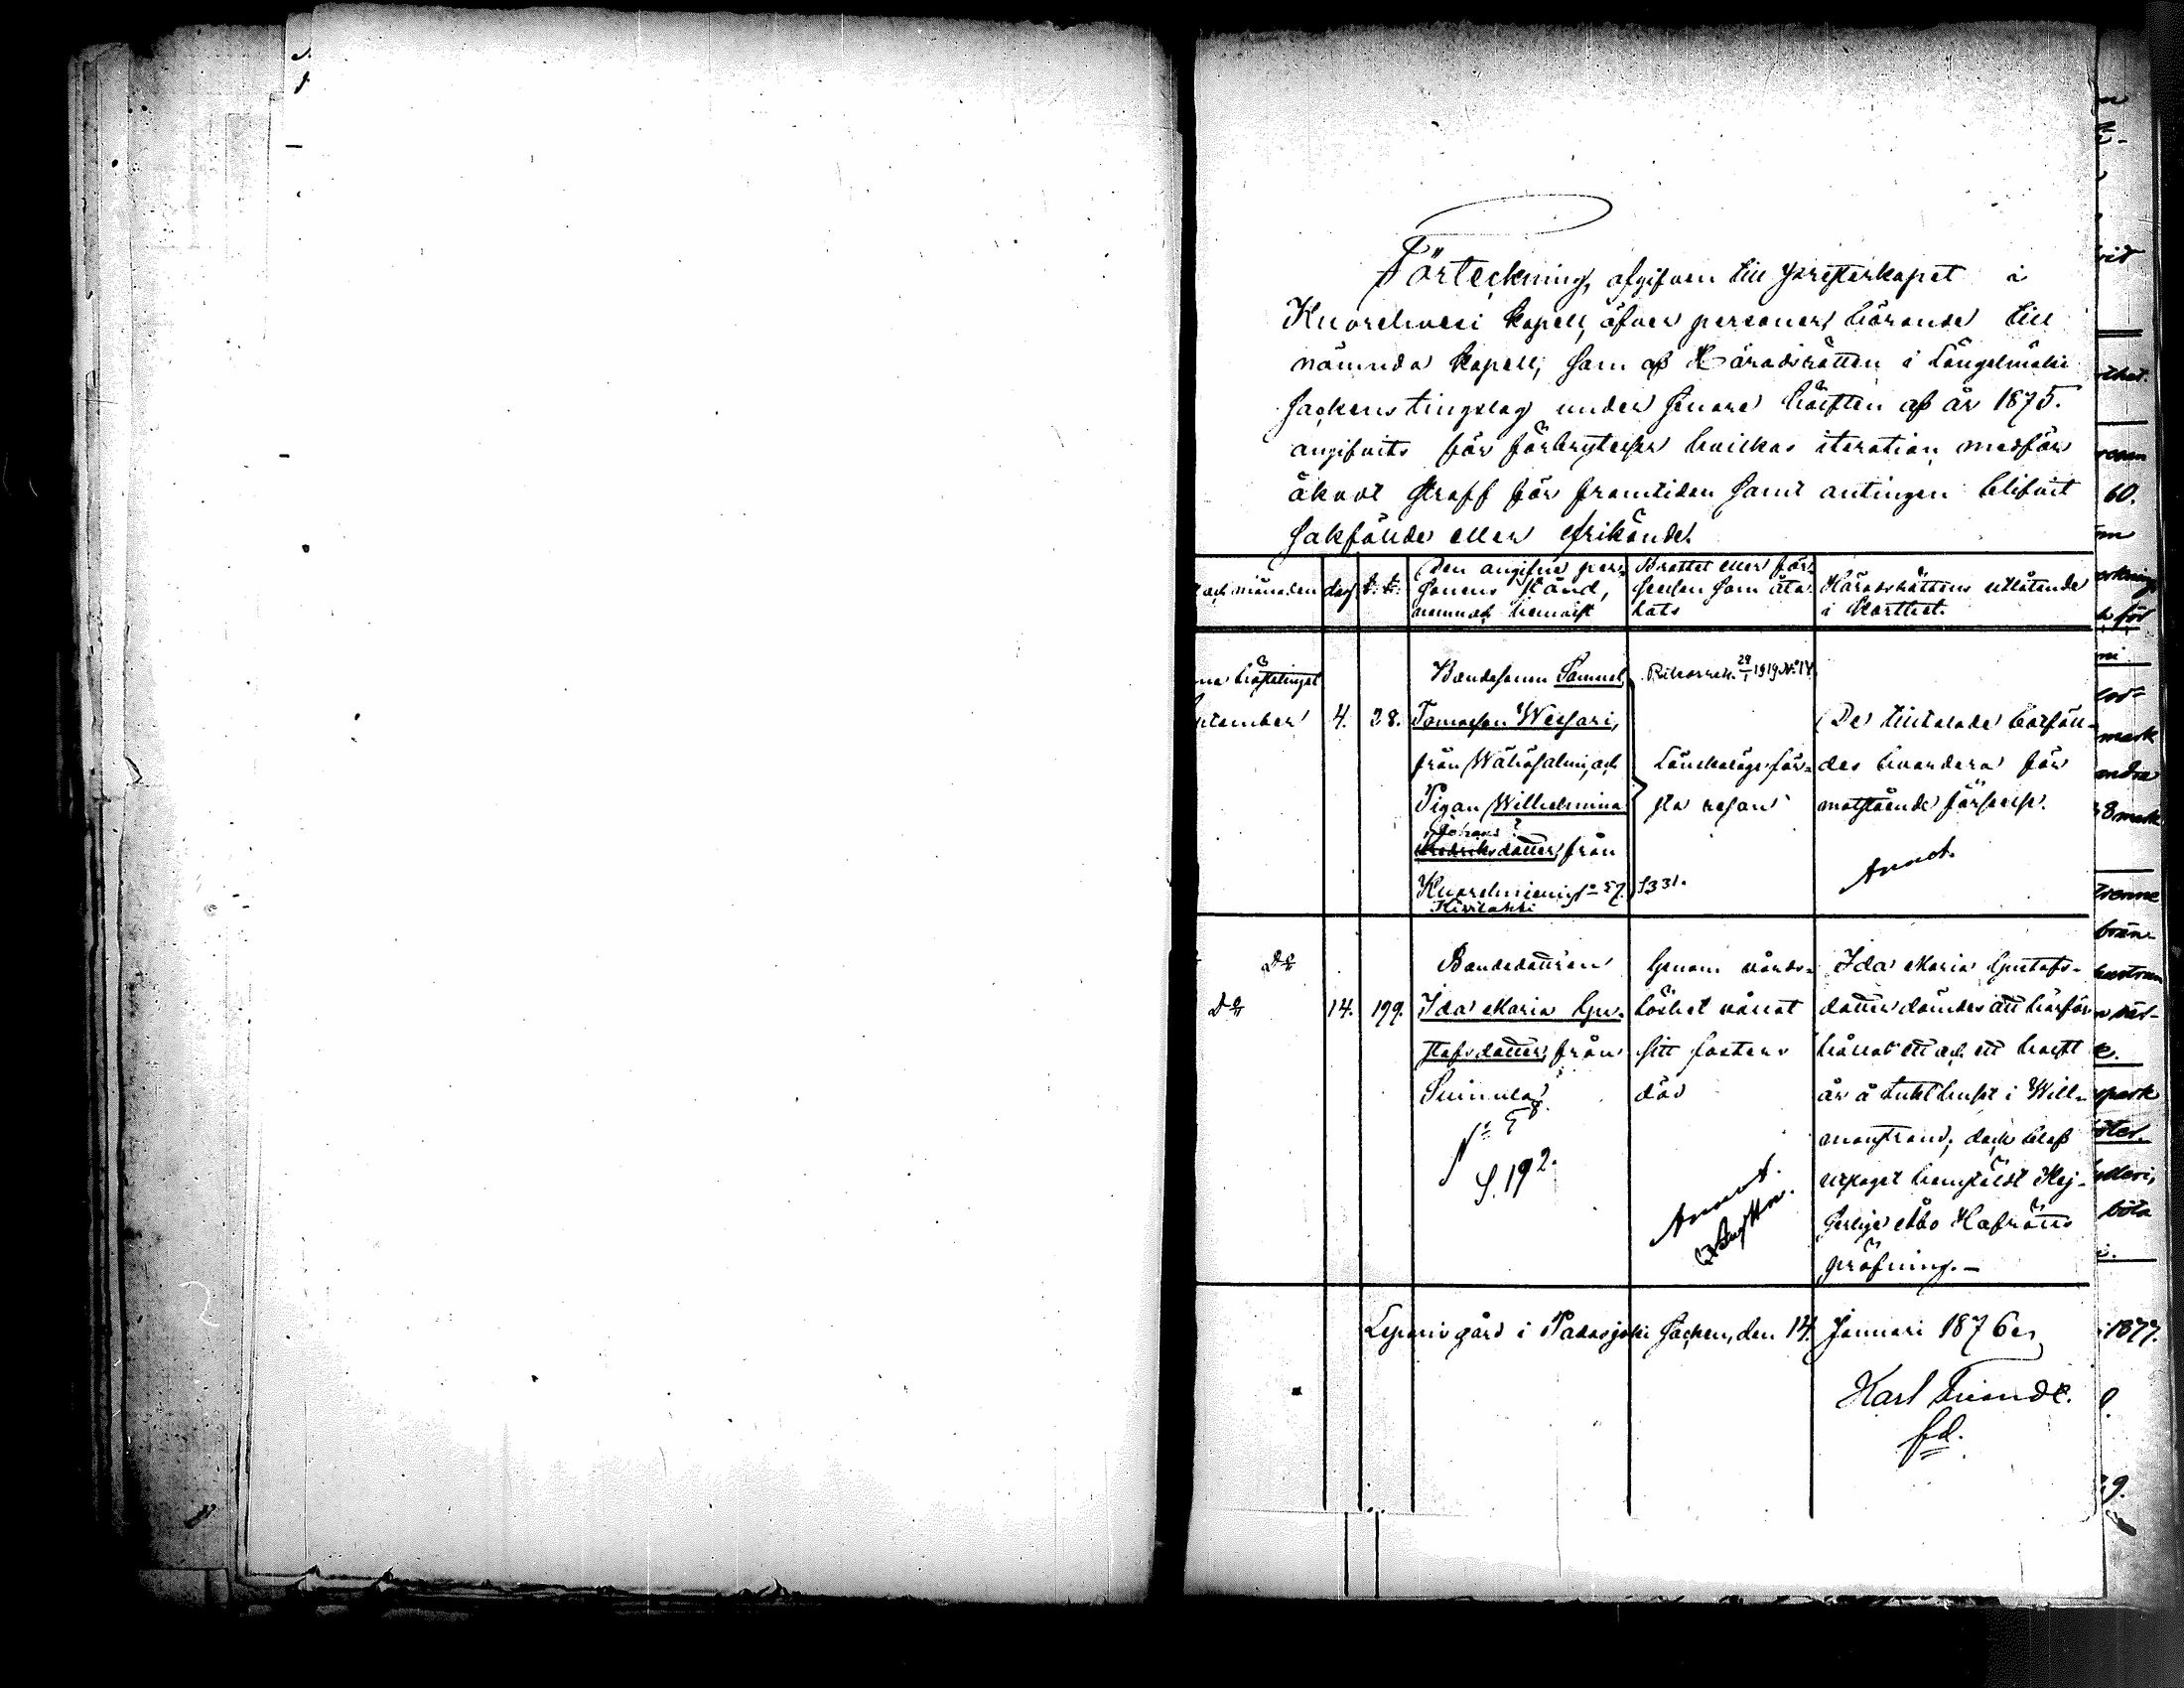 Förteckning, afgifven till presterskapet i
Kuorehvesi kapell, öfver personer, hörande till
nämnda kapell, som af Häradsrätten i Längelmäki
socken tingslag under senare hälften af år 1875.
angifvits för förbrytelser hvilkas iteration medför
ökadt straff för framtiden samt antingen blifvit
sakfälde eller frikände.
och månaden
dag
Den angifne per-
sonens stånd,
namn och hemvist
Brottet eller för-
seelsen som åta-
lats
Häradsrättens utlåtande
i korthet.
hösttinget
tember
4.
28.
Bondesonen Samuel
Tomasson Wessari,
från Wähäsalmi, och
Pigan Wilhelmina
Johans
Fredriksdotter, från
Kuorehniemi
Kivilahti
29/1 1919 No 14
Lönskaläge för-
sta resan
S 331.
De tilltalade botfäll-
des hvardera för
motstående förseelse.
Annot.
Do
Do
14.
199.
Bondedottren
Ida Maria Gu-
stafsdotter, från
Suinula
No 5
S. 192.
Genom vårds-
löshet vållat
sitt fosters
död
Annot.
Ida Maria Gustafs-
dotter dömdes att härför
hållas ett och ett halft
år å tukthuset i Will-
manstrand; dock blef
utslaget hemstäldt Kej-
serliga Åbo Hofrätts
pröfning.-
Leporis gård i Padasjoki socken, den 14. Januari 1876.
Karl
fd.
60.
mark
8 mark
böta
1877.
9.